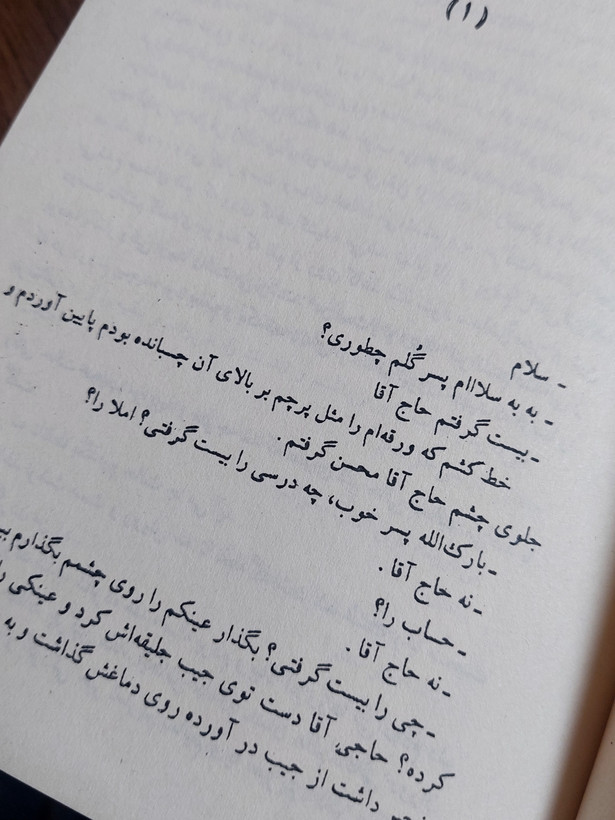 (۱)
- سلام
- به به سلااام پسر گُلم چطوری؟
- بیست گرفتم حاج آقا
خط کشم که ورقه‌ام را مثل پرچم بر بالای آن چسبانده بودم پایین آوردم و
جلوی چشم حاج آقا محسن گرفتم.
- بارک‌الله پسر خوب، چه درسی را بیست گرفتی؟ املا را؟
- نه حاج آقا.
- حساب را؟
- نه حاج آقا.
- چی را بیست گرفتی؟ بگذار عینکم را روی چشمم بگذارم
کرده؟ حاجی آقا دست توی جیب جلیقه‌اش کرد و عینکی
داشت از جیب در آورده روی دماغش گذاشت و به